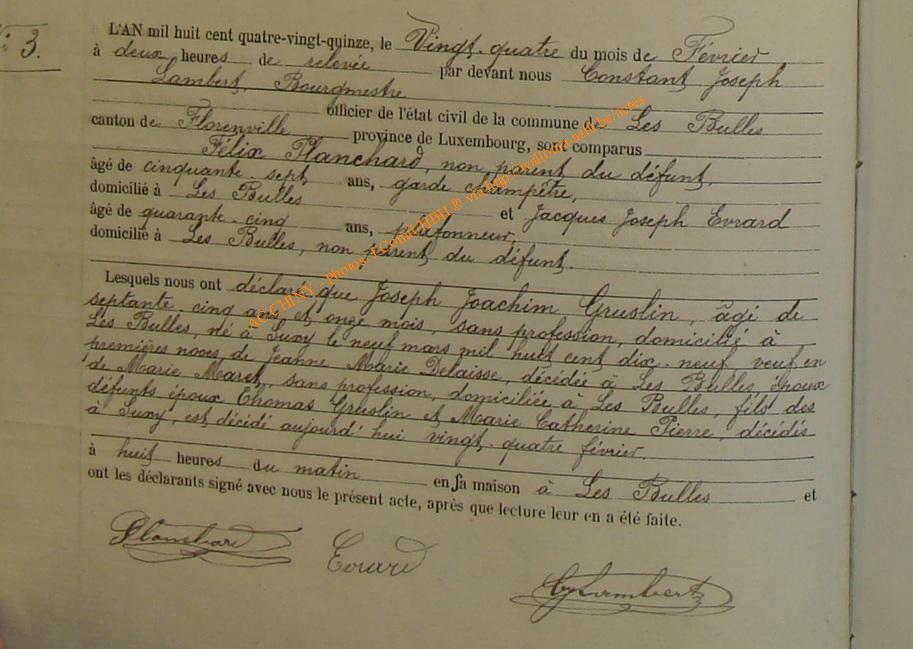 N° 3.
L'AN mil huit cent quatre-vingt-quinze, le Vingt-quatre du mois de Février
à deux heures de relevée par devant nous Constant Joseph
Lambert, Bourgmestre
officier de l'état civil de la commune de Les Bulles
canton de Florenville province de Luxembourg, sont comparus
Félix Planchard, non parent du défunt,
âgé de cinquante-sept ans, garde champêtre,
domicilié à Les Bulles et Jacques Joseph Evrard
âgé de quarante-cinq ans, plafonneur,
domicilié à Les Bulles, non parent du défunt.
Lesquels nous ont déclaré que Joseph Joachim Gruslin, âgé de
septante-cinq ans et onze mois, sans profession, domicilié à
Les Bulles, né à Suxy le neuf mars mil huit cent dix-neuf, veuf en
premières noces de Jeanne Marie Delaisse, décédée à Les Bulles, époux
de Marie Maret, sans profession, domiciliée à Les Bulles, fils des
défunts époux Thomas Gruslin et Marie Catherine Pierre, décédés
à Suxy, est décédé aujourd'hui vingt-quatre février.
à huit heures du matin en sa maison à Les Bulles et
ont les déclarants signé avec nous le présent acte, après que lecture leur en a été faite.
Planchard Evrard CjLambert